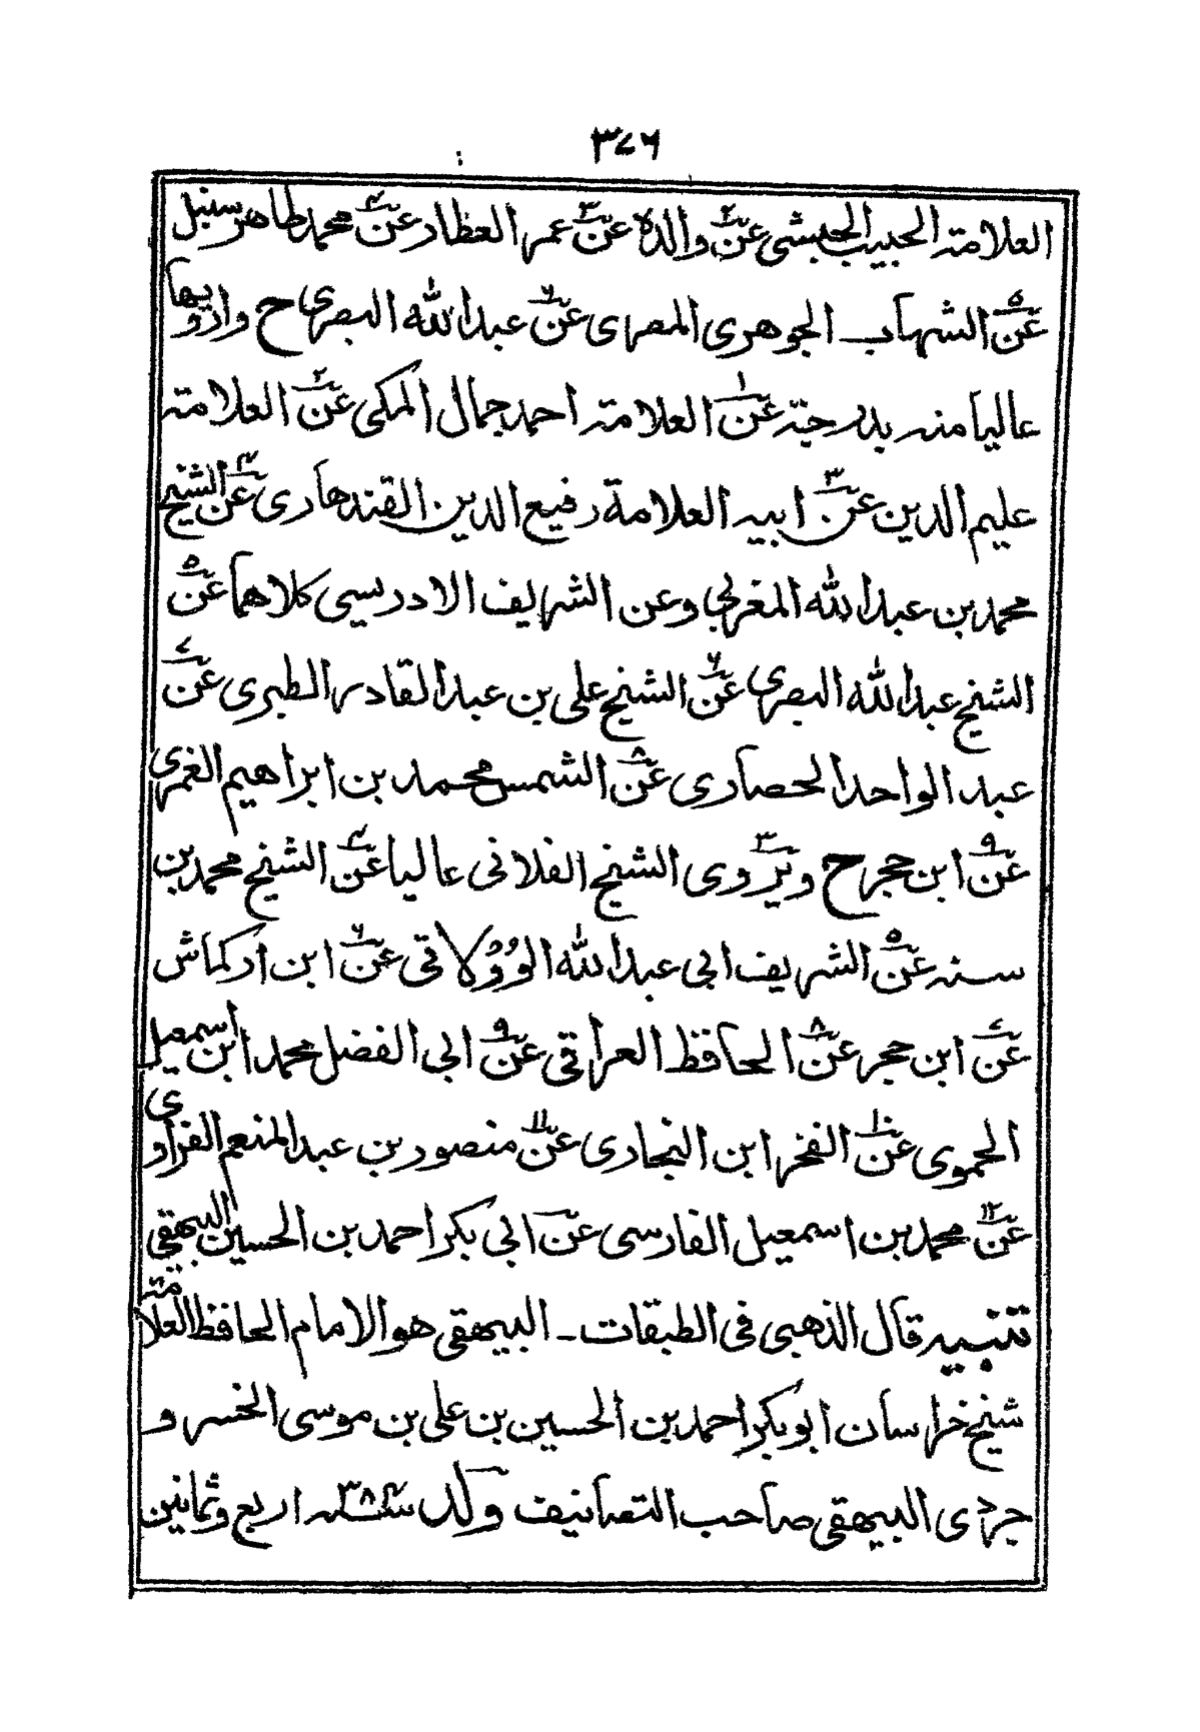 ٣٧٦
العلامة الحبيب الحبشى عن٢ والده عن٣ عمر العطار عن٤ محمد طاهر سنبل
عن٥ الشهاب الجوهرى المصرى عن٦ عبد الله البصرى ح وارويها
عاليا منه بدرجة عن١ العلامة احمد جمال المكى عن٢ العلامة
عليم الدين عن٣ ابيه العلامة رفيع الدين القندهارى عن٤ الشيخ
محمد بن عبد الله المغربى وعن الشريف الادريسى كلاهما عن٥
الشيخ عبد الله البصرى عن٦ الشيخ على بن عبد القادر الطبرى عن٧
عبد الواحد الحصارى عن٨ الشمس محمد بن ابراهيم الغمرى
عن٩ ابن حجر ح ويروى٣ الشيخ الفلانى عاليا عن٤ الشيخ محمد بن
سنه عن٥ الشريف ابى عبد الله الوولاتى عن٦ ابن اركماش
عن٧ ابن حجر عن٨ الحافظ العراقى عن٩ ابى الفضل محمد ابن اسمعيل
الحموى عن١٠ الفخر ابن البخارى عن١١ منصور بن عبد المنعم الفراوى
عن١٢ محمد بن اسمعيل الفارسى عن ابى بكر احمد بن الحسين البيهقى
تنبيه قال الذهبى فى الطبقات ـ البيهقى هو الامام الحافظ العلامة
شيخ خراسان ابو بكر احمد بن الحسين بن على بن موسى الخسرو
جردى البيهقى صاحب التصانيف ولد سنة ٣٨٤ اربع وثمانين